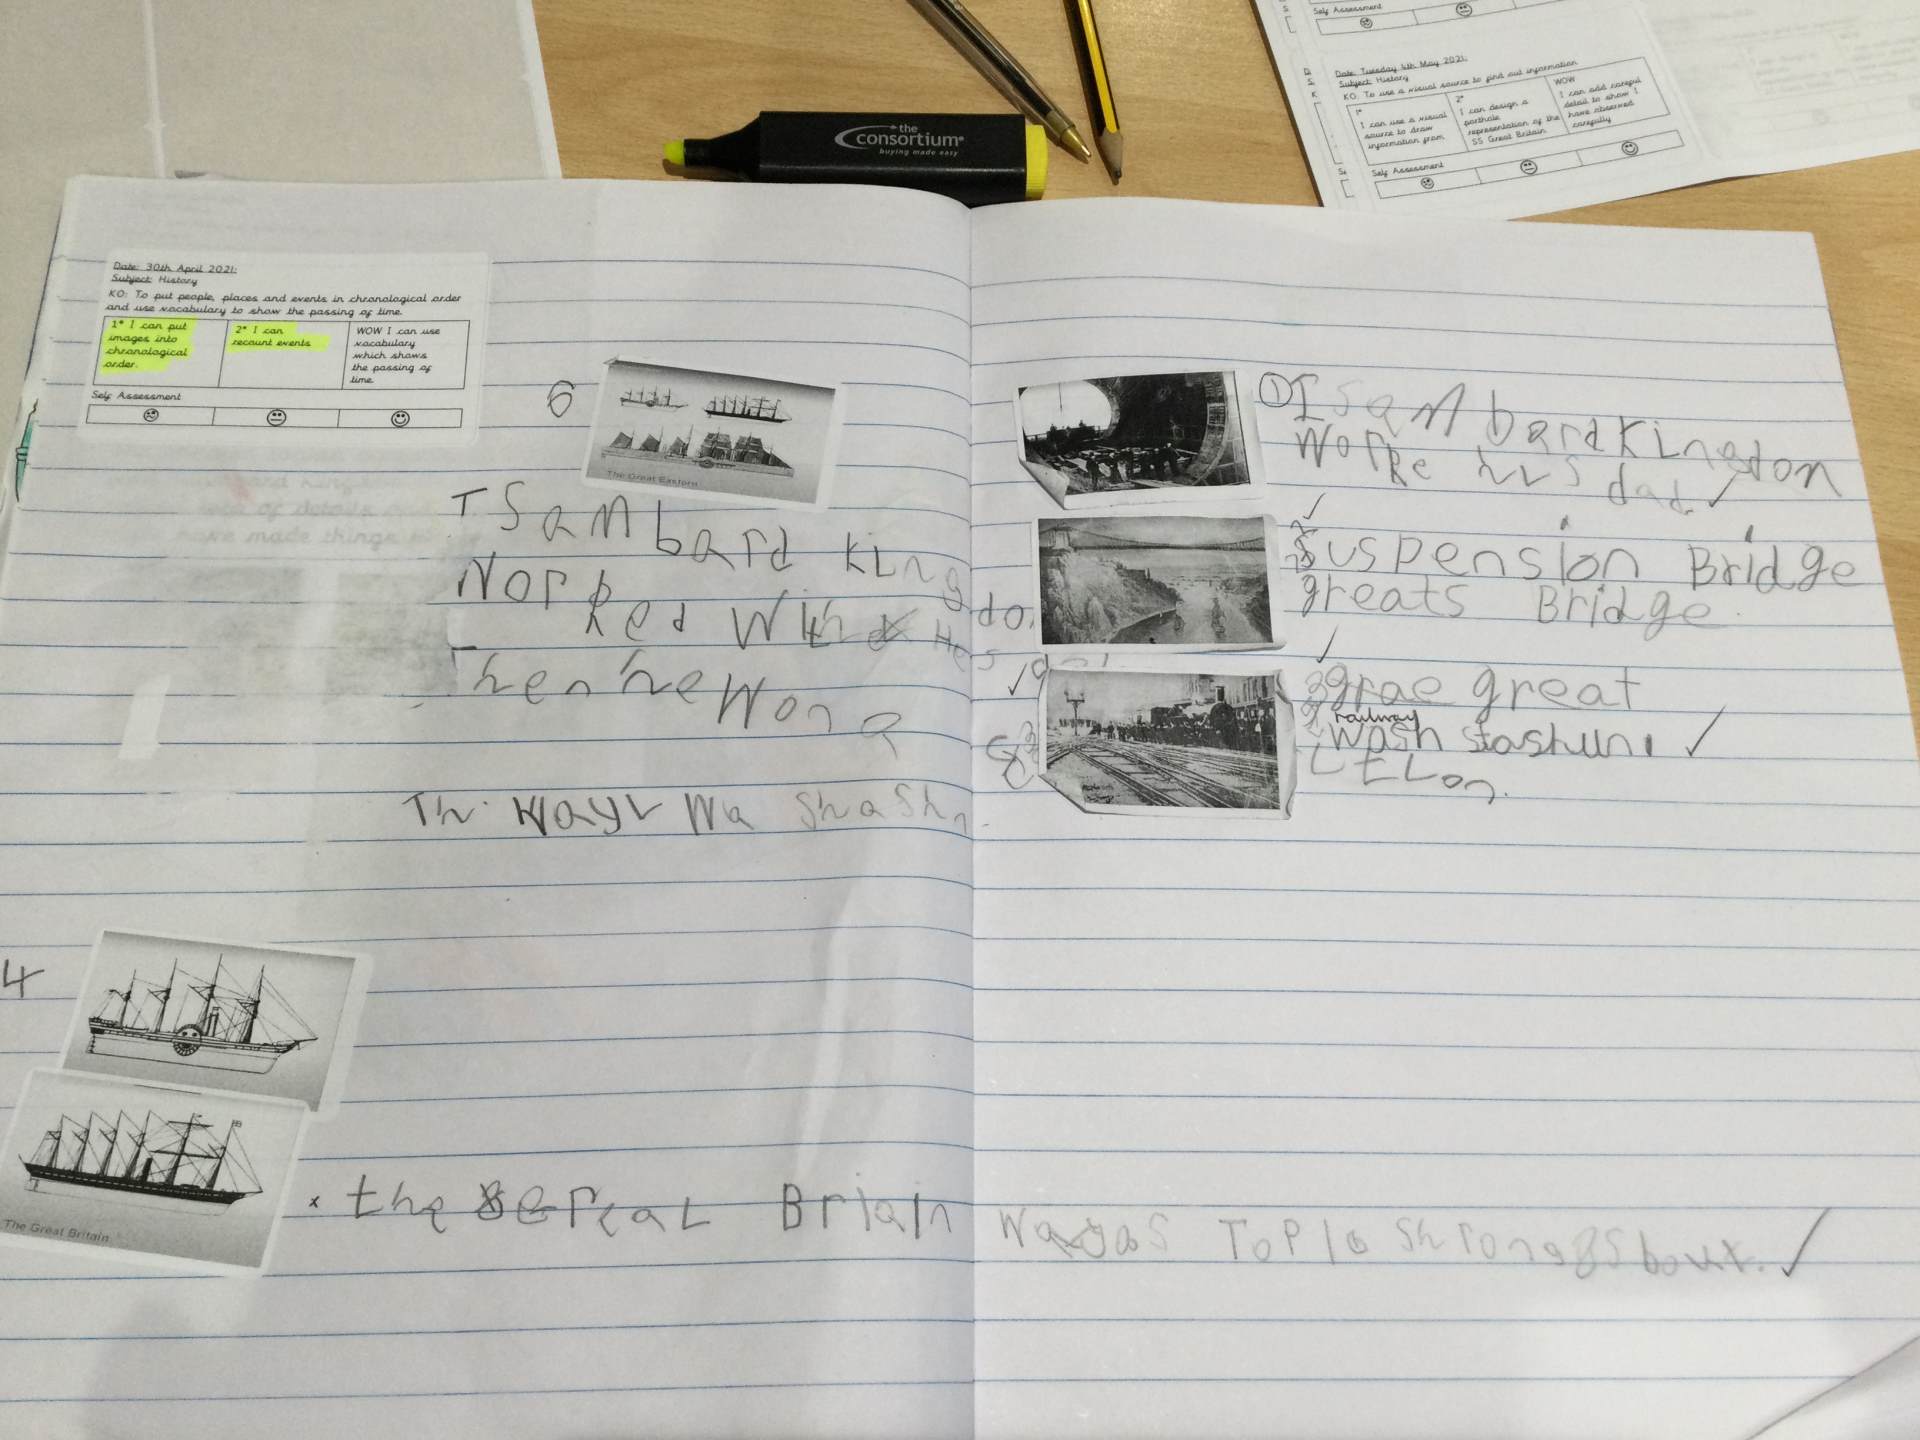 Self Assessment
Date: Tuesday 4th May 2021:
Subject: History
KO: To use a visual source to find out information
1* I can use a visual source to draw information from
2* I can design a porthole representation of the SS Great Britain
WOW I can add careful detail to show I have observed carefully
Self Assessment
the consortium
buying made easy
Date: 30th April 2021:
Subject: History
KO: To put people, places and events in chronological order
and use vocabulary to show the passing of time.
1* I can put images into chronological order.
2* I can recount events
WOW I can use vocabulary which shows the passing of time
Self Assessment
6
The Great Eastern
Isambard King do
Worked with Hes
Then he Wong
Th Wayr Wa Shashn
4
The Great Britain
the Bereat Briain Wayas Top 10 Shrongs boux.
① Isambard Kingdon
Worke his dad
2 Suspension Bridge
greats Bridge.
3 grae great
railway
Wash stashun